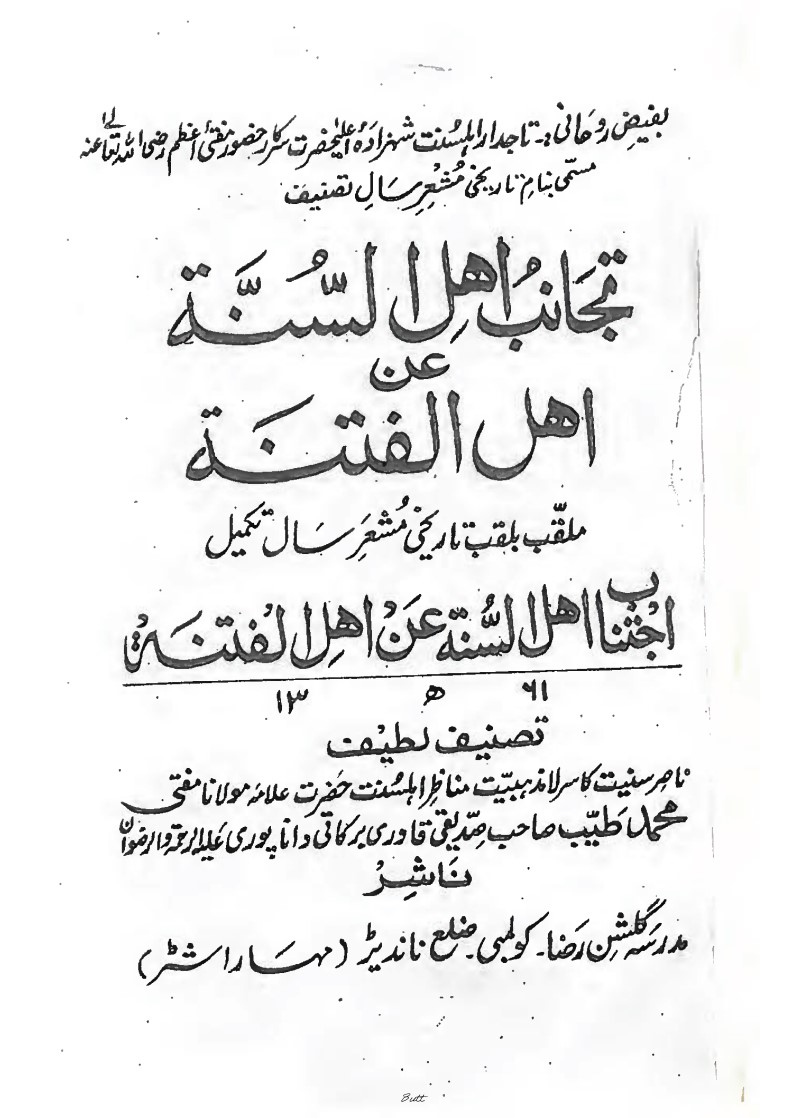 بفیضِ روحانی :۔ تاجدار اہلسُنت شہزادۂ اعلیٰحضرت سرکار حضور مفتیٔ اعظم رضی اللہ تعالیٰ عنہ
مسمّی بنامِ تاریخی مُشْعِرِ سَالِ تصنیف
تَجَانُبُ اَهلِ السُّنَّة
عن
اهل الفتنَة
ملقّب بلقب تاریخی مُشعَرِ سَال تکمیل
اجْتناب اهل السُّنّة عَنْ اهلِ الفُتنَةْ
۱۳ ھ ۶۱
تصنیف لطیف
ناصر سنیت کاسر لامذہبیّت مناظر اہلسُنت حَضرت علامہ مولانا مفتی
محمد طیّب صاحب صِدّیقی قادری برکاتی دانا پوری علیہ الرحمۃ والرضوان
نَاشِرْ
مدرسَہ گلشنِ رَضا۔ کولمبی۔ ضلع ناندیڑ (مہَاراشٹر)
Butt